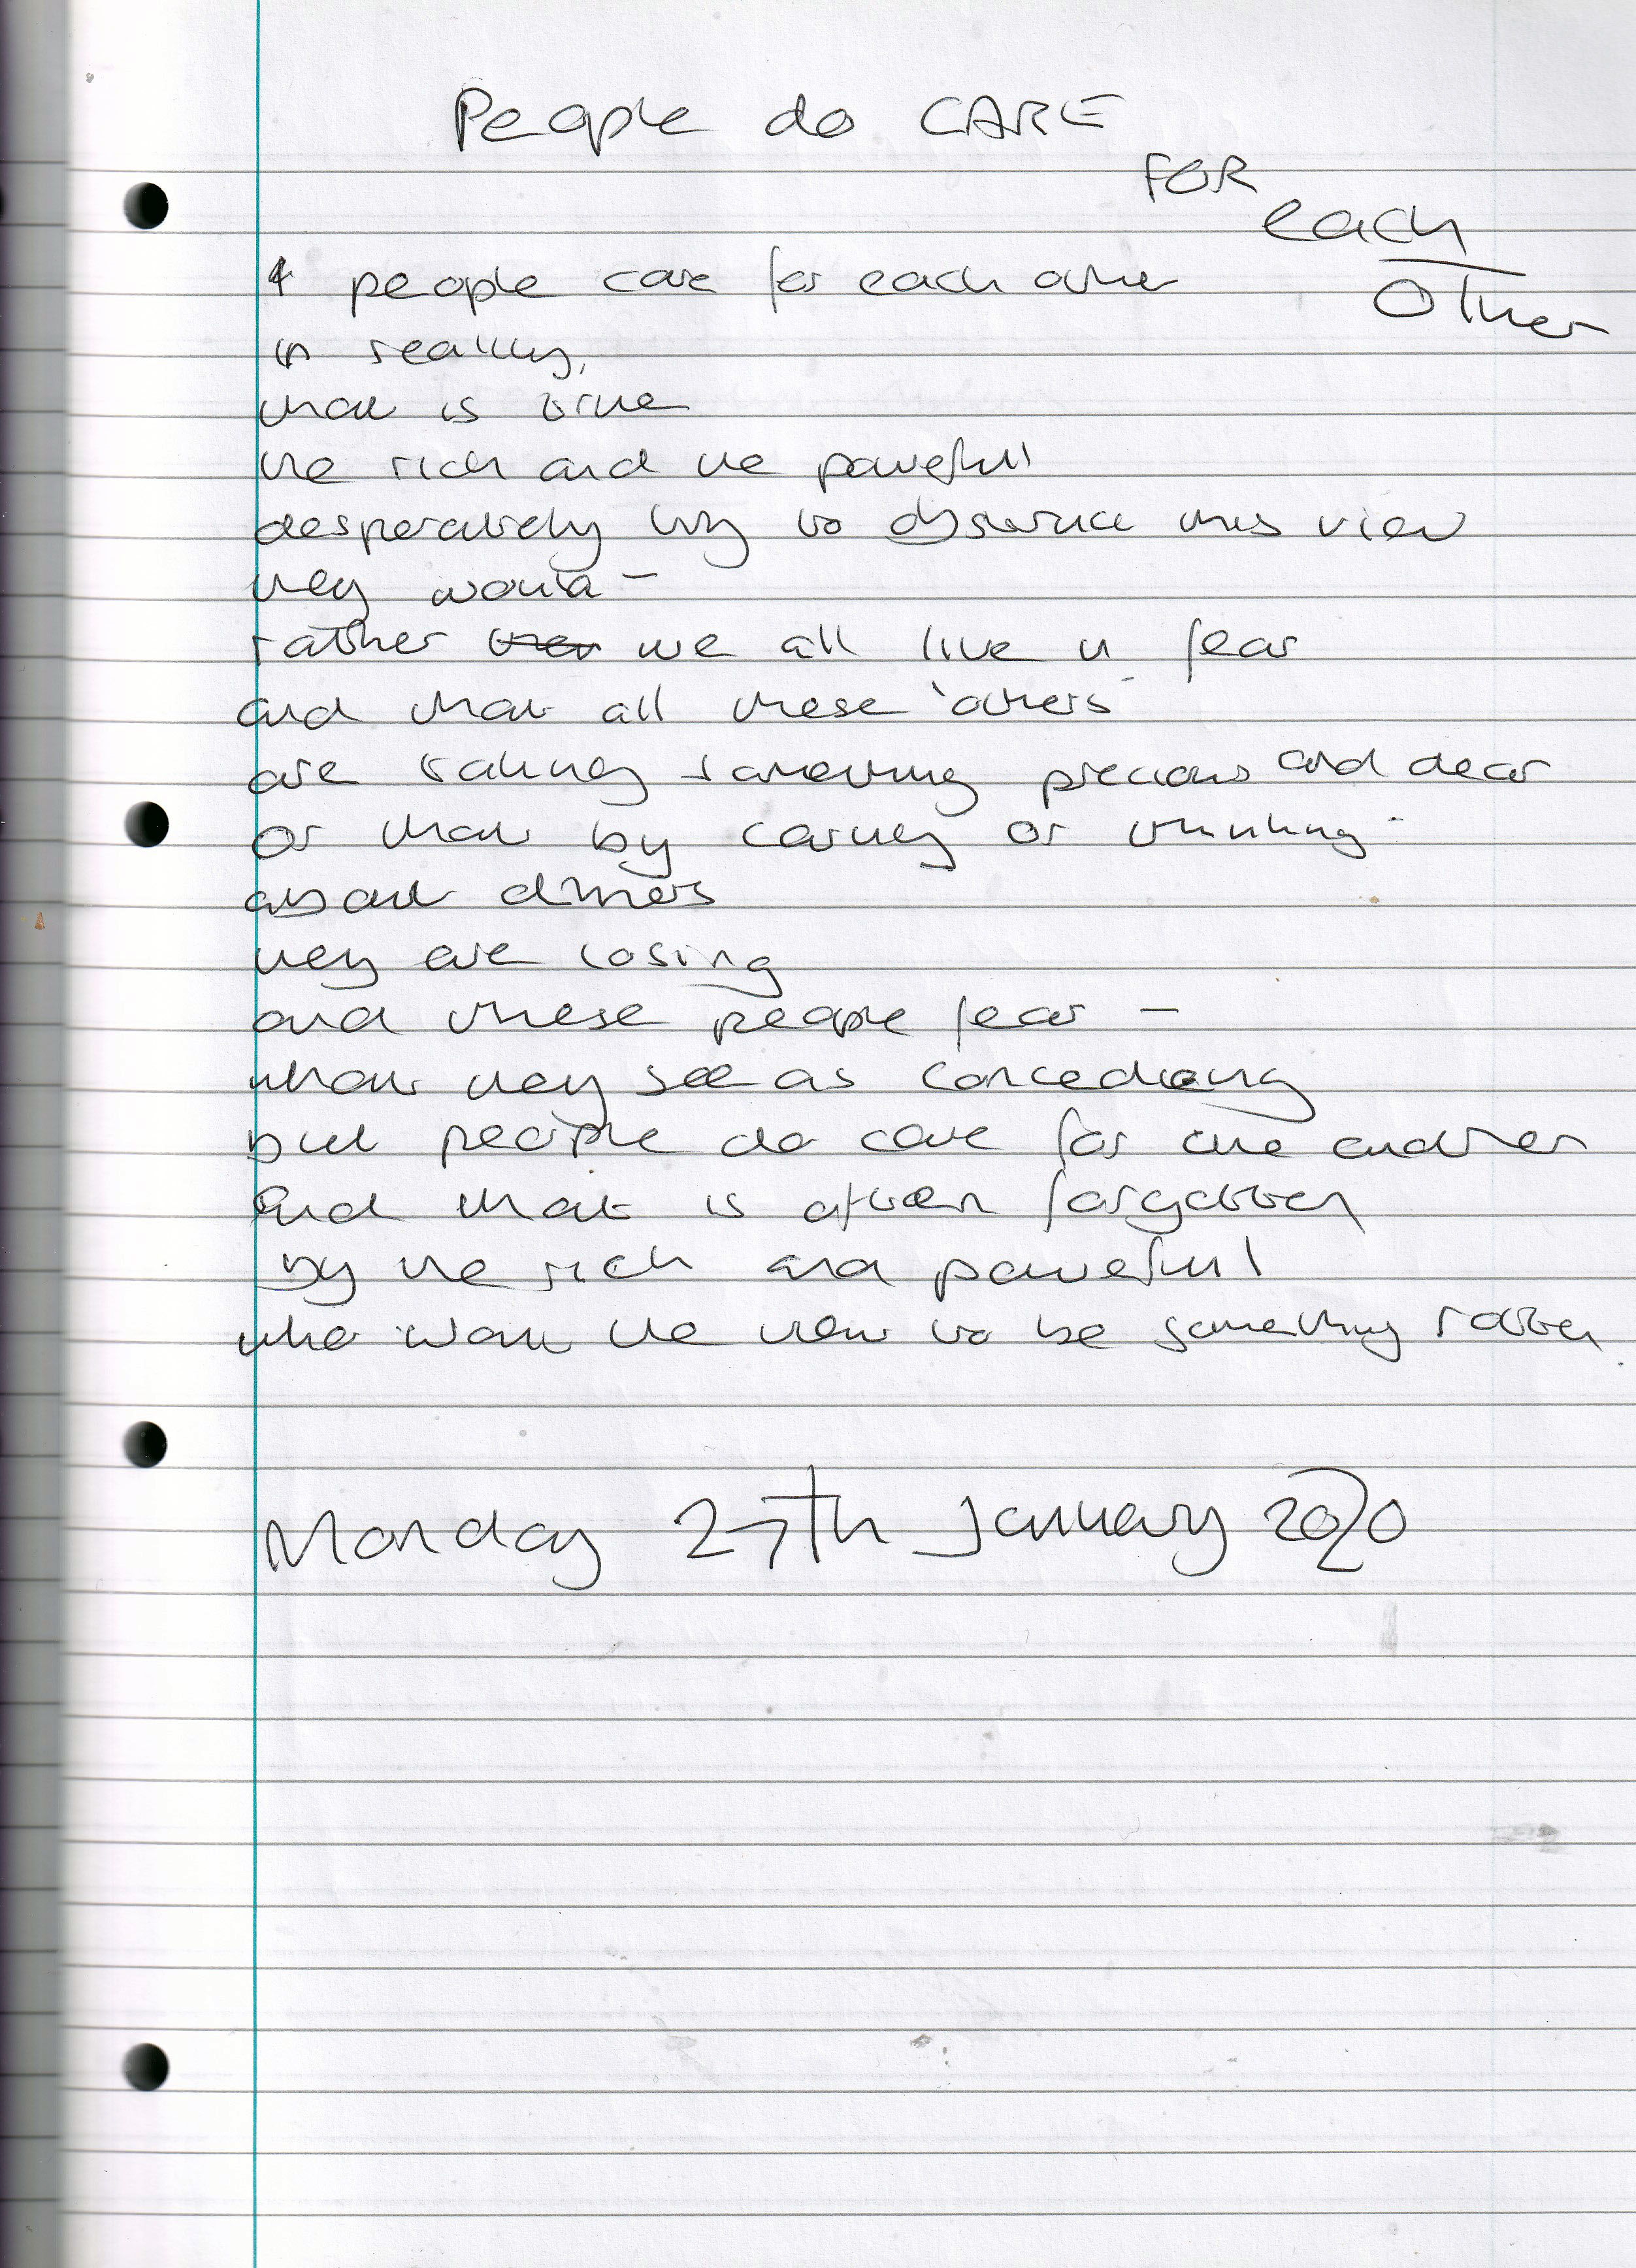 People do CARE
FOR
each
other
& people care for each other
in reality,
that is true
the rich and the powerful
desperately try to distance this view
they would -
rather we all live in fear
and that all these 'others'
are taking something precious and dear
or that by caring or thinking
about others
they are losing
and these people fear -
what they see as conceding
but people do care for one another
and that is often forgotten
by the rich and powerful
who want the view to be something rotten.
Monday 27th January 2020